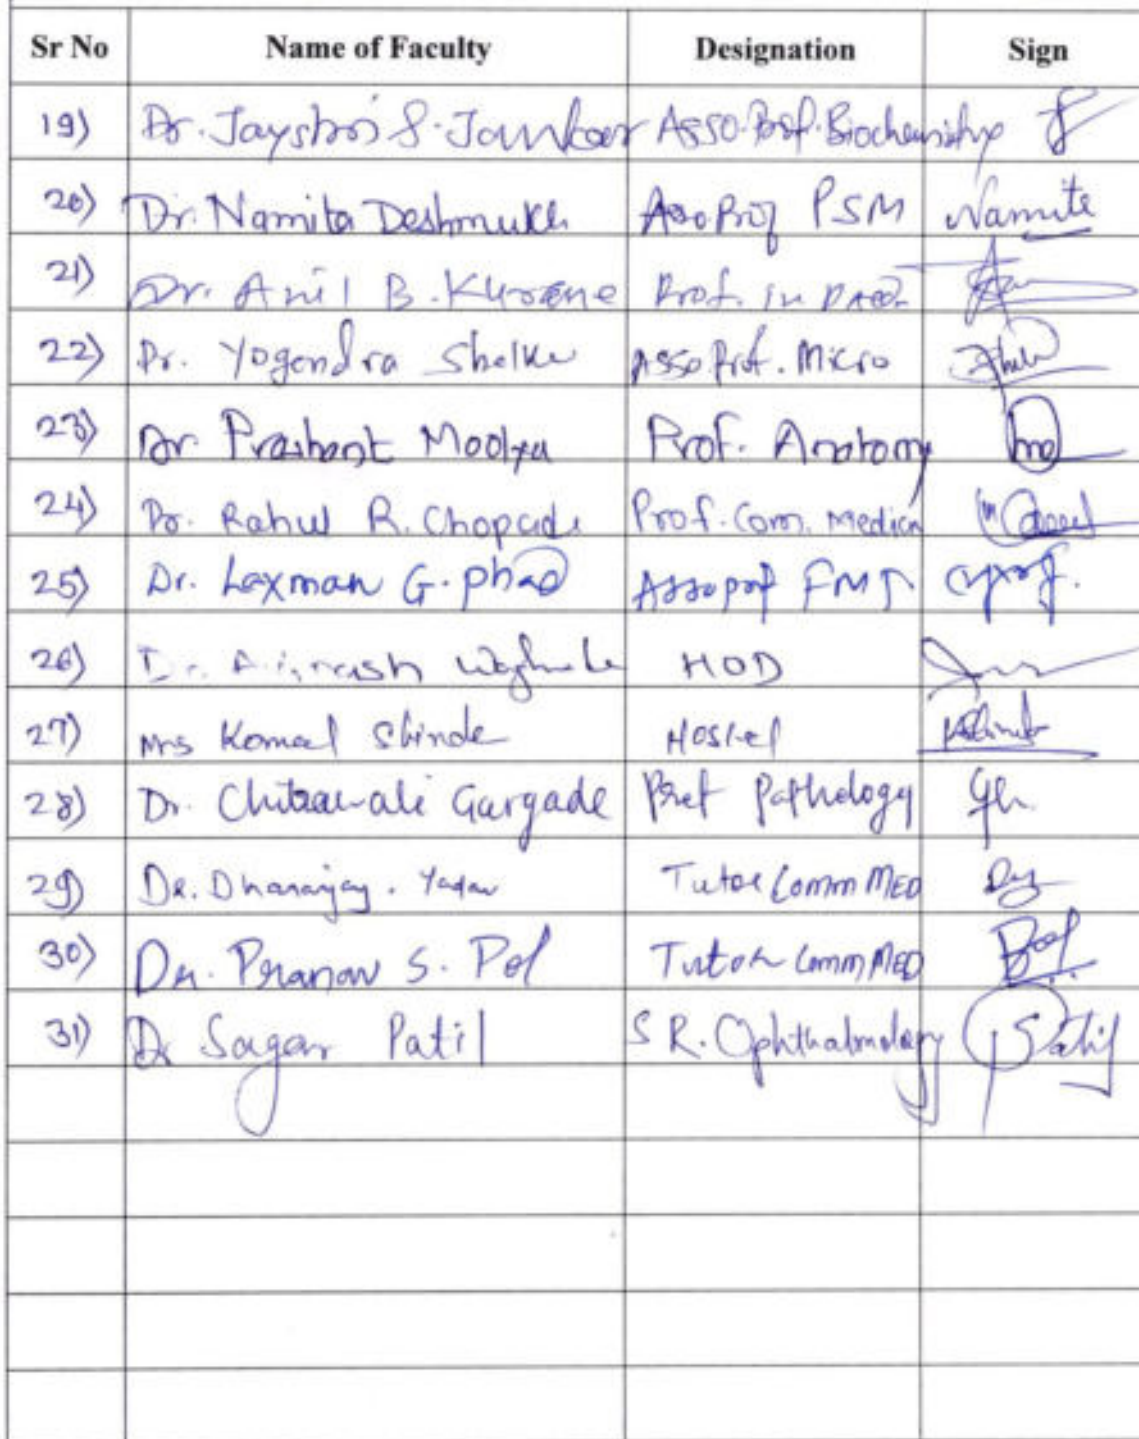 Sr No Name of Faculty Designation Sign
19) Dr. Jayshri S. Jankar Asso. Prof. Biochemistry
20) Dr. Namita Deshmukh Asso Prof PSM Namita
21) Dr. Anil B. Khurane Prof. in
22) Dr. Yogendra Shelke Asso Prof. Micro
23) Dr. Prashant Moolya Prof. Anatomy
24) Dr. Rahul R. Chopade Prof. Com. Medicn
25) Dr. Laxman G. Phad Assoprof FMT
26) Dr. Avinash Waghule HOD
27) Mrs Komal Shinde Hostel
28) Dr. Chitrawali Gargade Prof Pathology
29) Dr. Dhananjay. Yadav Tutor Comm MED
30) Dr. Pranav S. Pol Tutor Comm MED
31) Dr Sagar Patil S R. Ophthalmology Patil